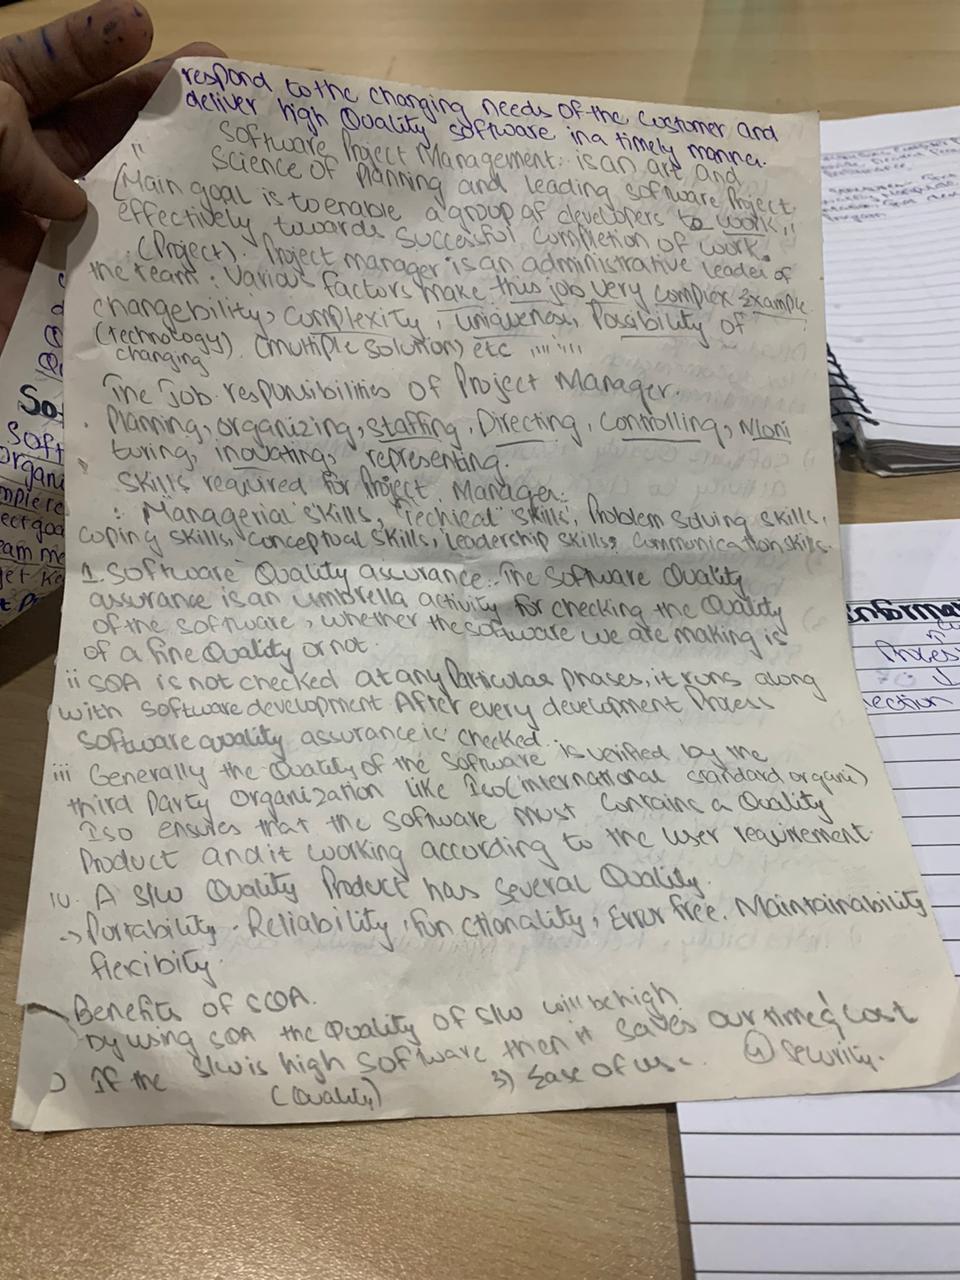 respond to the changing needs of the customer and
deliver high Quality software in a timely manner.
" Software Project Management: is an art and
science of Planning and leading software Project
(Main goal is to enable a group of developers to work,,
effectively towards successful completion of work.
(Project). Project manager is an administrative leader of
the team: Various factors make this job very complex Example
changebility, complexity, uniqueness, Possibility of
(technology). (multiple solution) etc
changing
The Job responsibilities of Project Manager.
. Planning, organizing, staffing, Directing, Controlling, Moni
turing, inovating, representing.
Skills required for Project Manager:
: Managerial skills, Techical skills, Problem Solving Skills,
coping skills, conceptual skills, leadership skills, communication skills.
1. Software Quality assurance. The Software Quality
assurance is an umbrella activity for checking the Quality
of the software, whether the software we are making is
of a fine Quality or not.
ii SQA is not checked at any Particular phases, it runs along
with software development After every development Process
Software quality assurance is checked.
iii Generally the Quality of the Software is verified by the
third Party Organization like Iso (international standard organi)
Iso ensures that the software must contains a Quality
Product and it working according to the user requirement
iv. A s/w Quality Product has several Quality.
-> Portability. Reliability, Functionality, Error free. Maintainability
flexibity.
Benefits of SCQA.
by using SQA the Quality of s/w will be high
) If the s/w is high software then it saves our time & cost
(Quality) 3) Ease of use. 4) Security.
So
Soft
organi
Informa
Proces
ection